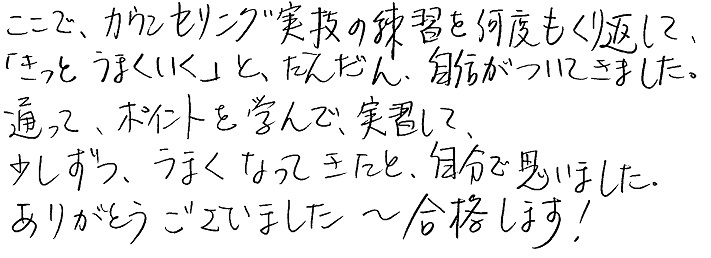 ここで、カウンセリング実技の練習を何度もくり返して、
「きっと うまくいく」と、だんだん、自信がついてきました。
通って、ポイントを学んで、実習して、
少しずつ、うまくなってきたと、自分で思いました。
ありがとうございました 〜合格します!